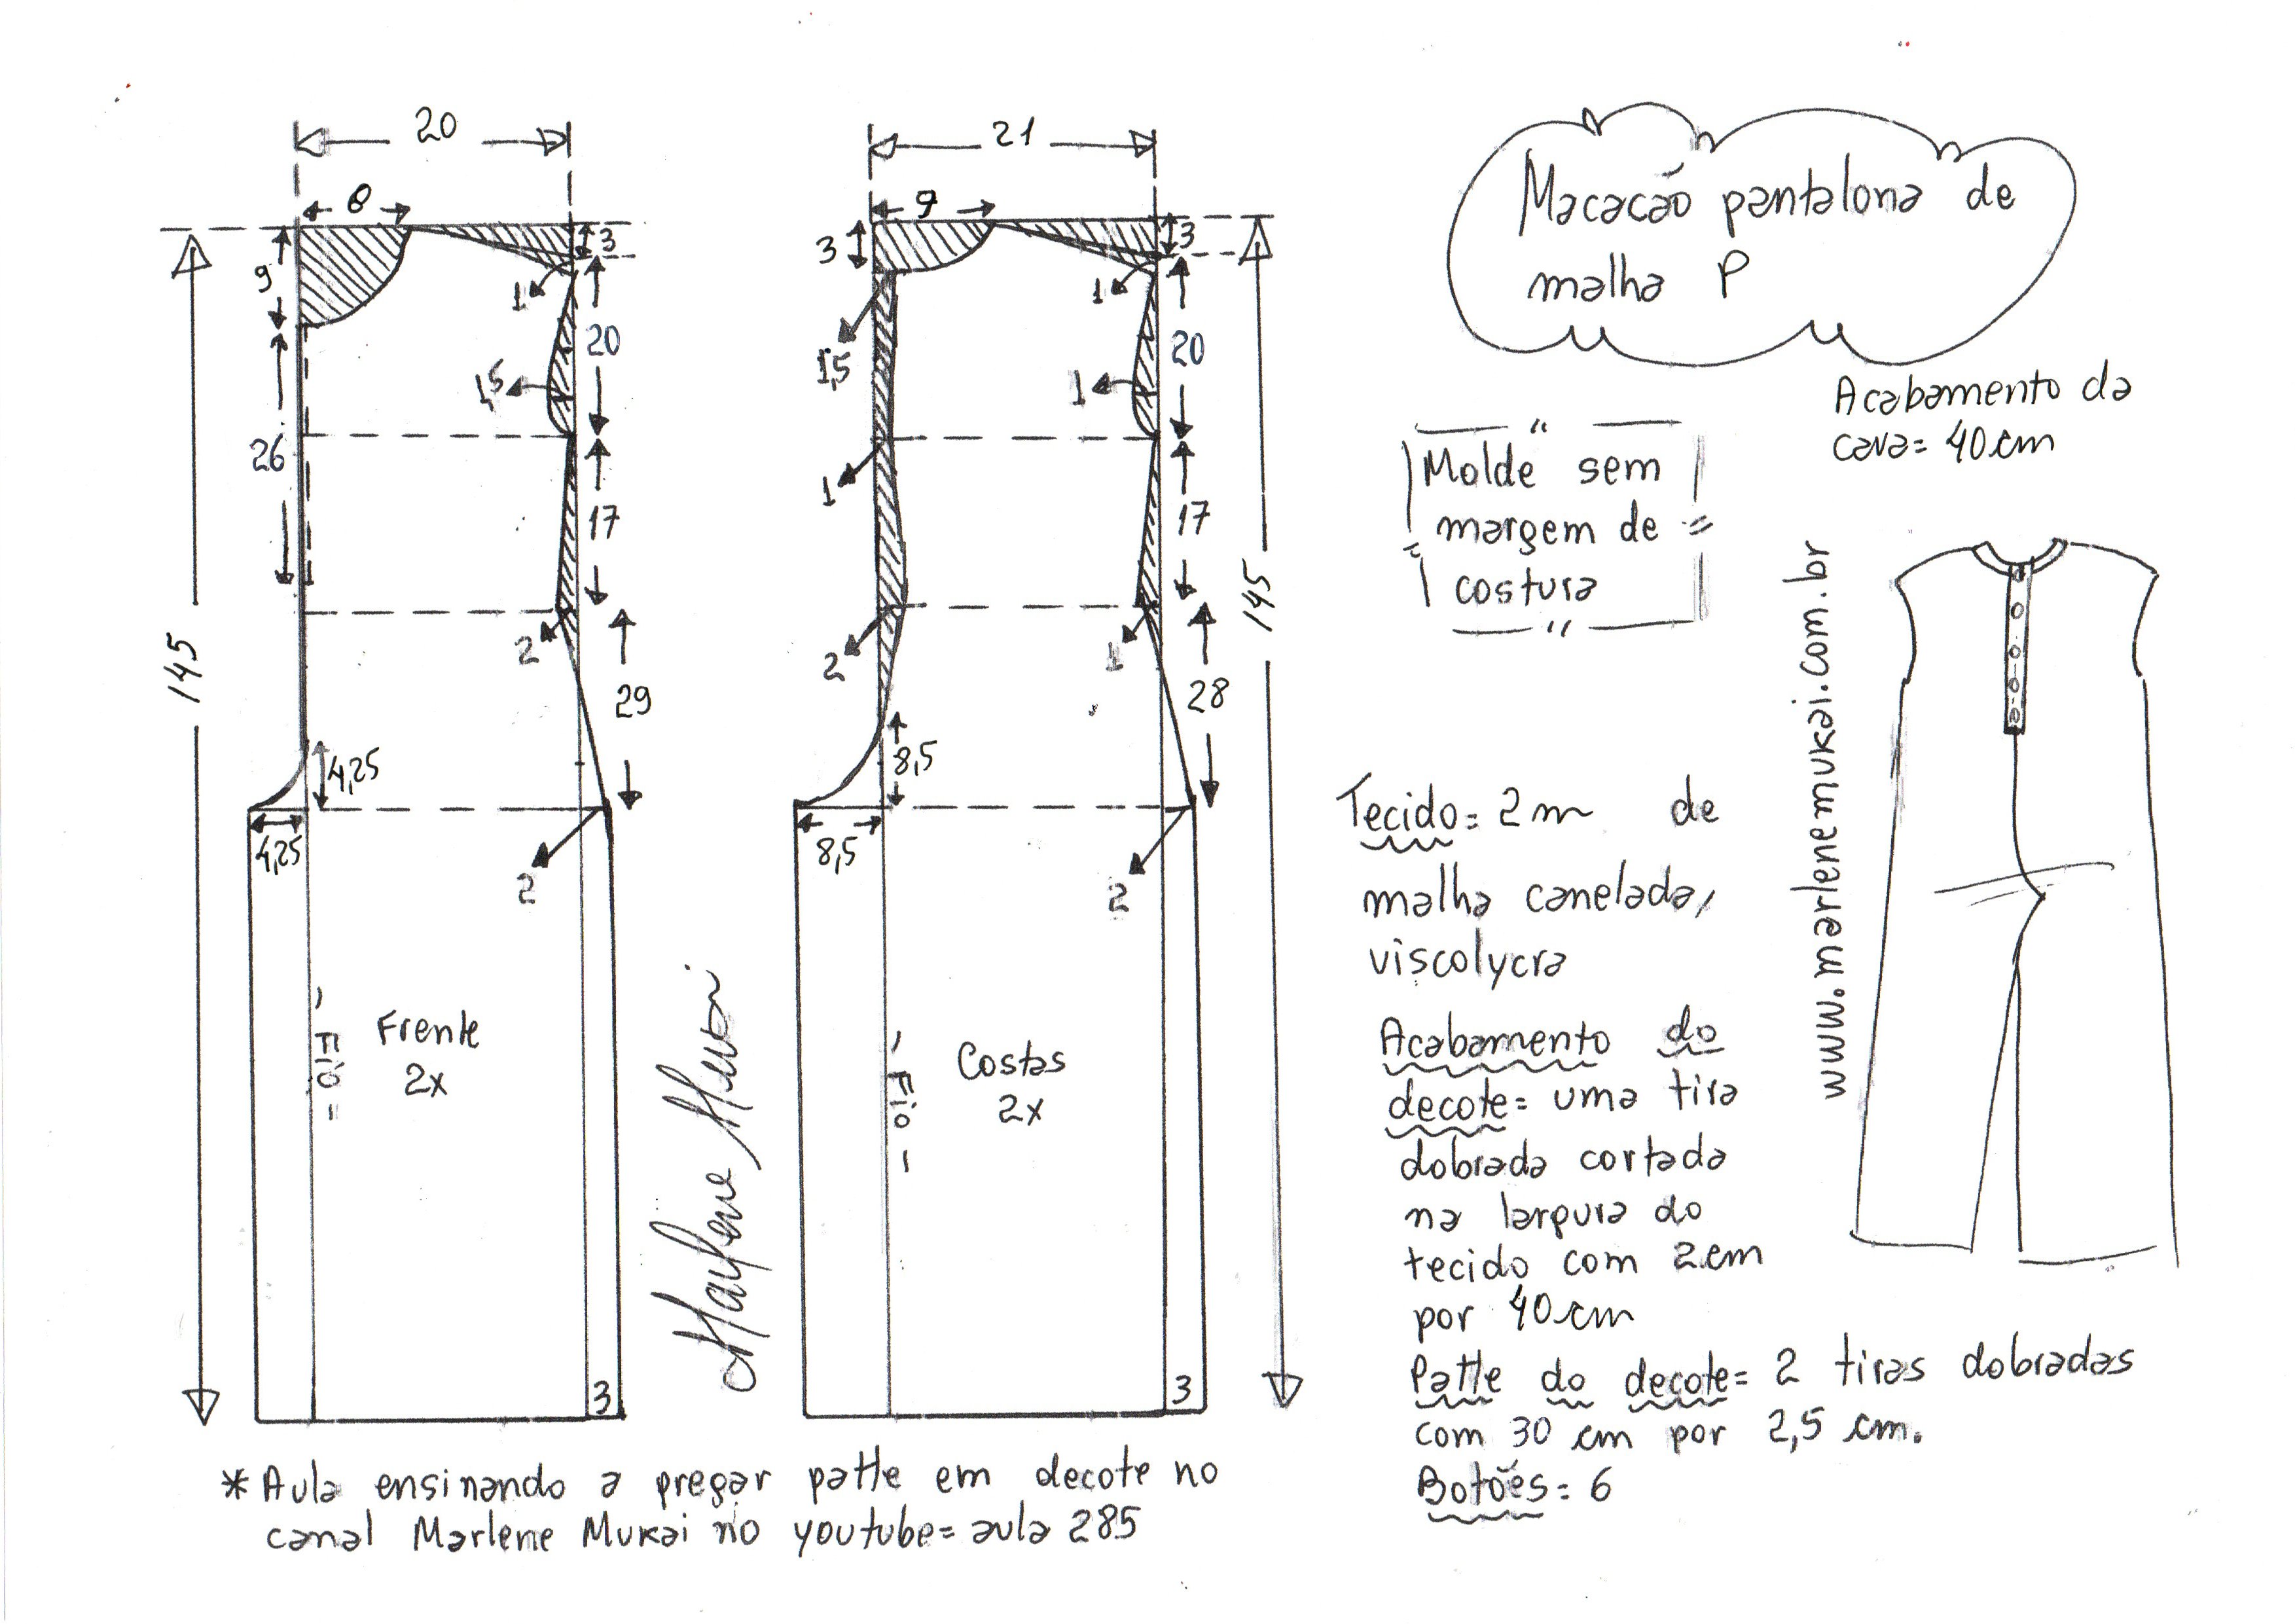 20
8
9
3
1
20
1,5
26
17
2
29
145
4,25
4,25
2
Fio
Frente
2x
3
Marlene Mukai
21
9
3
3
1
1,5
20
1
1
17
2
1
28
145
8,5
8,5
2
Fio
Costas
2x
3
Macacão pantalona de
malha P
Acabamento da
cava= 40cm
Molde sem
margem de
costura
www.marlenemukai.com.br
Tecido= 2m de
malha canelada,
viscolycra
Acabamento do
decote= uma tira
dobrada cortada
na largura do
tecido com 2cm
por 40cm
Patte do decote= 2 tiras dobradas
com 30 cm por 2,5 cm.
Botões= 6
* Aula ensinando a pregar patte em decote no
canal Marlene Mukai no youtube= aula 285